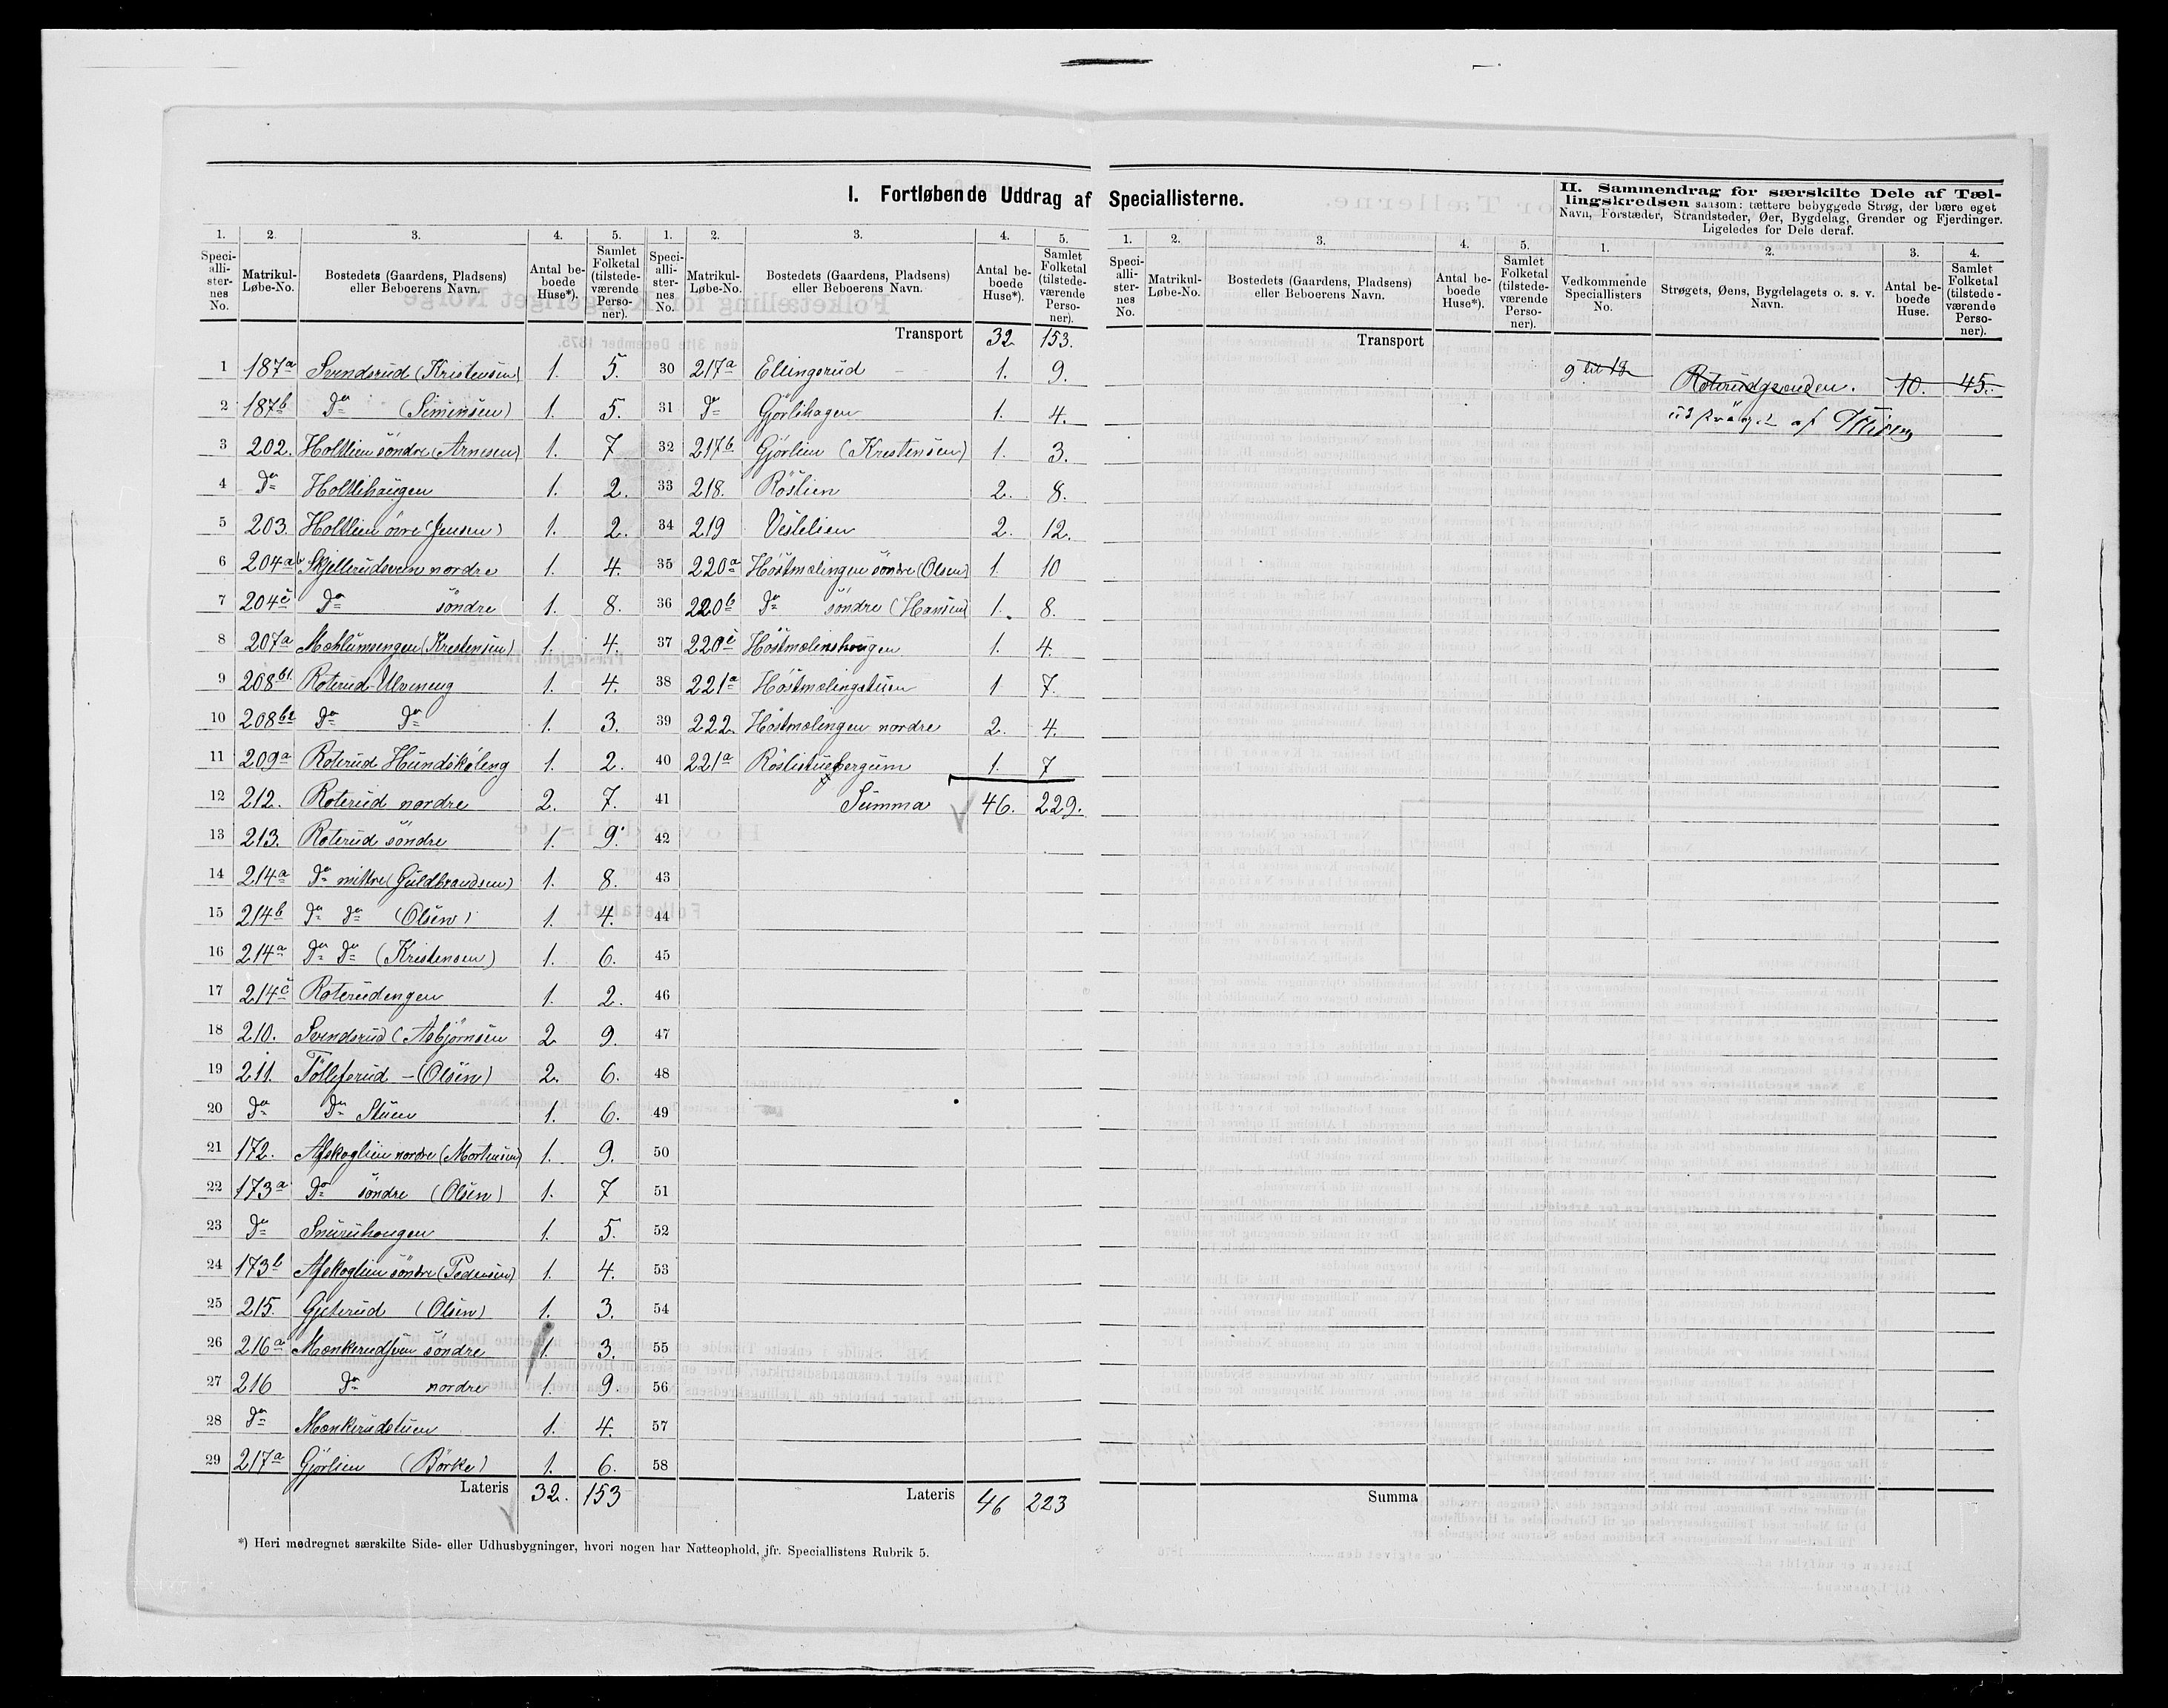 I. Fortløbende Uddrag af Speciallisterne.
II. Sammendrag for særskilte Dele af Tæl-
lingskredsen saasom: tættere bebyggede Strøg, der bære eget
Navn, Forstæder, Strandsteder, Øer, Bygdelag, Grender og Fjerdinger.
Ligeledes for Dele deraf.
1. 2. 3. 4. 5. 1. 2. 3. 4. 5. 1. 2. 3. 4. 5. 1. 2. 3. 4.
Speci-alli-ster-nes No. Matrikul-Løbe-No. Bostedets (Gaardens, Pladsens) eller Beboerens Navn. Antal be-boede Huse*). Samlet Folketal (tilstede-værende Perso-ner).
Speci-alli-ster-nes No. Matrikul-Løbe-No. Bostedets (Gaardens, Pladsens) eller Beboerens Navn. Antal be-boede Huse*). Samlet Folketal (tilstede-værende Perso-ner).
Speci-alli-ster-nes No. Matrikul-Løbe-No. Bostedets (Gaardens, Pladsens) eller Beboerens Navn. Antal be-boede Huse*). Samlet Folketal (tilstede-værende Perso-ner).
Vedkommende Speciallisters No. Strøgets, Øens, Bygdelagets o. s. v. Navn. Antal be-boede Huse. Samlet Folketal (tilstede-værende Perso-ner).
1 187a Svendsrud (Kristensen) 1. 5.
2 187b Do (Simensen) 1. 5.
3 202. Holtlien söndre (Arnesen) 1. 7
4 Do Holtlihaugen 1. 2.
5 203. Holtlien övre (Jensen) 1. 2.
6 204ab Skjellerudsveen nordre 1. 4.
7 204c Do söndre 1. 8.
8 207a Mæhlumsengen (Kristensen) 1. 4.
9 208b1. Roterud-Ulveneng 1. 4.
10 208b2 Do Do 1. 3.
11 209a Roterud Hundsköleng 1. 2.
12 212. Roterud nordre 2. 7.
13 213. Roterud söndre 1. 9.
14 214a Do mittre (Guldbrandsen) 1. 8.
15 214b Do Do (Olsen) 1. 4.
16 214a Do Do (Kristensen) 1. 6.
17 214c Roterudengen 1. 2.
18 210. Svendsrud (Asbjørnsen 2 9.
19 211. Tollefsrud - (Olsen) 2. 6.
20 Do Do Stuen 1. 6.
21 172. Afskoglien nordre (Mortensen) 1. 9.
22 173a Do söndre (Olsen) 1. 7
23 Do Snuruhougen 1. 5.
24 173b Afskoglien söndre (Pedersen) 1. 4.
25 215. Gjeterud (Olsen) 1. 3.
26 216a Mænkerudsveen söndre 1. 3.
27 216 Do nordre 1. 9.
28 Do Mænkerudstuen 1. 4.
29 217a Gjörlien (Börke) 1. 6.
Lateris 32. 153
Transport 32 153.
30 217a Ellingsrud 1. 9.
31 Do Gjörlihagen 1. 4.
32 217b Gjörlien (Kristensen) 1. 3.
33 218. Röslien 2. 8.
34 219 Veslelien 2. 12.
35 220a Höstmælingen söndre (Olsen) 1. 10
36 220b Do söndre (Hansen) 1. 8.
37 220c Höstmælinshougen 1. 4.
38 221a Höstmælingstuen 1 7.
39 222. Höstmælingen nordre 2. 4.
40 221a Röslistuebergum 1. 7
41 Summa 46. 229.
42
43
44
45
46
47
48
49
50
51
52
53
54
55
56
57
58
Lateris 46 223
Transport
Summa
9 til 18 Roterudgrenden. 10. 45.
*) Heri medregnet særskilte Side- eller Udhusbygninger, hvori nogen har Natteophold, jfr. Speciallistens Rubrik 5.